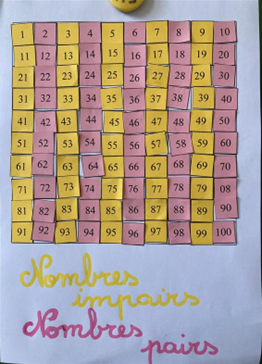 1 2 3 4 5 6 7 8 9 10
11 12 13 14 15 16 17 18 19 20
21 22 23 24 25 26 27 28 29 30
31 32 33 34 35 36 37 38 39 40
41 42 43 44 45 46 47 48 49 50
51 52 53 54 55 56 57 58 59 60
61 62 63 64 65 66 67 68 69 70
71 72 73 74 75 76 77 78 79 08
81 82 83 84 85 86 87 88 89 90
91 92 93 94 95 96 97 98 99 100
Nombres
impairs
Nombres
pairs